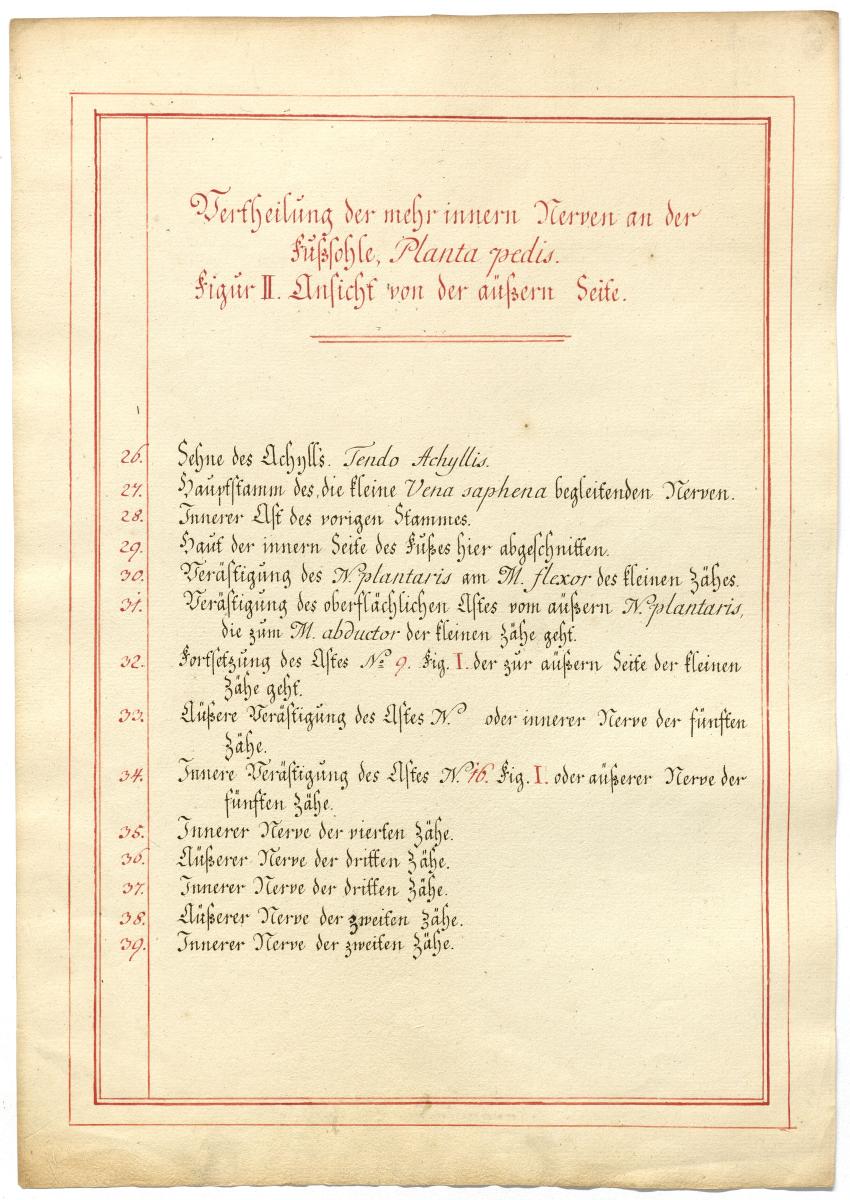 Vertheilung der mehr innern Nerven an der
Fußsohle, Planta pedis.
Figur II. Ansicht von der äußern Seite.
26. Sehne des Achylls. Tendo Achyllis.
27. Hauptstamm des, die kleine Vena saphena begleitenden Nerven.
28. Innerer Ast des vorigen Stammes.
29. Haut der innern Seite des Fußes hier abgeschnitten.
30. Verästigung des N. plantaris am M. flexor des kleinen Zähes.
31. Verästigung des oberflächlichen Astes vom äußern N. plantaris,
die zum M. abductor der kleinen Zähe geht.
32. Fortsetzung des Astes No 9. Fig. I. der zur äußern Seite der kleinen
Zähe geht.
33. Äußere Verästigung des Astes N. oder innerer Nerve der fünften
Zähe.
34. Innere Verästigung des Astes N. 16. Fig. I. oder äußerer Nerve der
fünften Zähe.
35. Innerer Nerve der vierten Zähe.
36. Äußerer Nerve der dritten Zähe.
37. Innerer Nerve der dritten Zähe.
38. Äußerer Nerve der zweiten Zähe.
39. Innerer Nerve der zweiten Zähe.